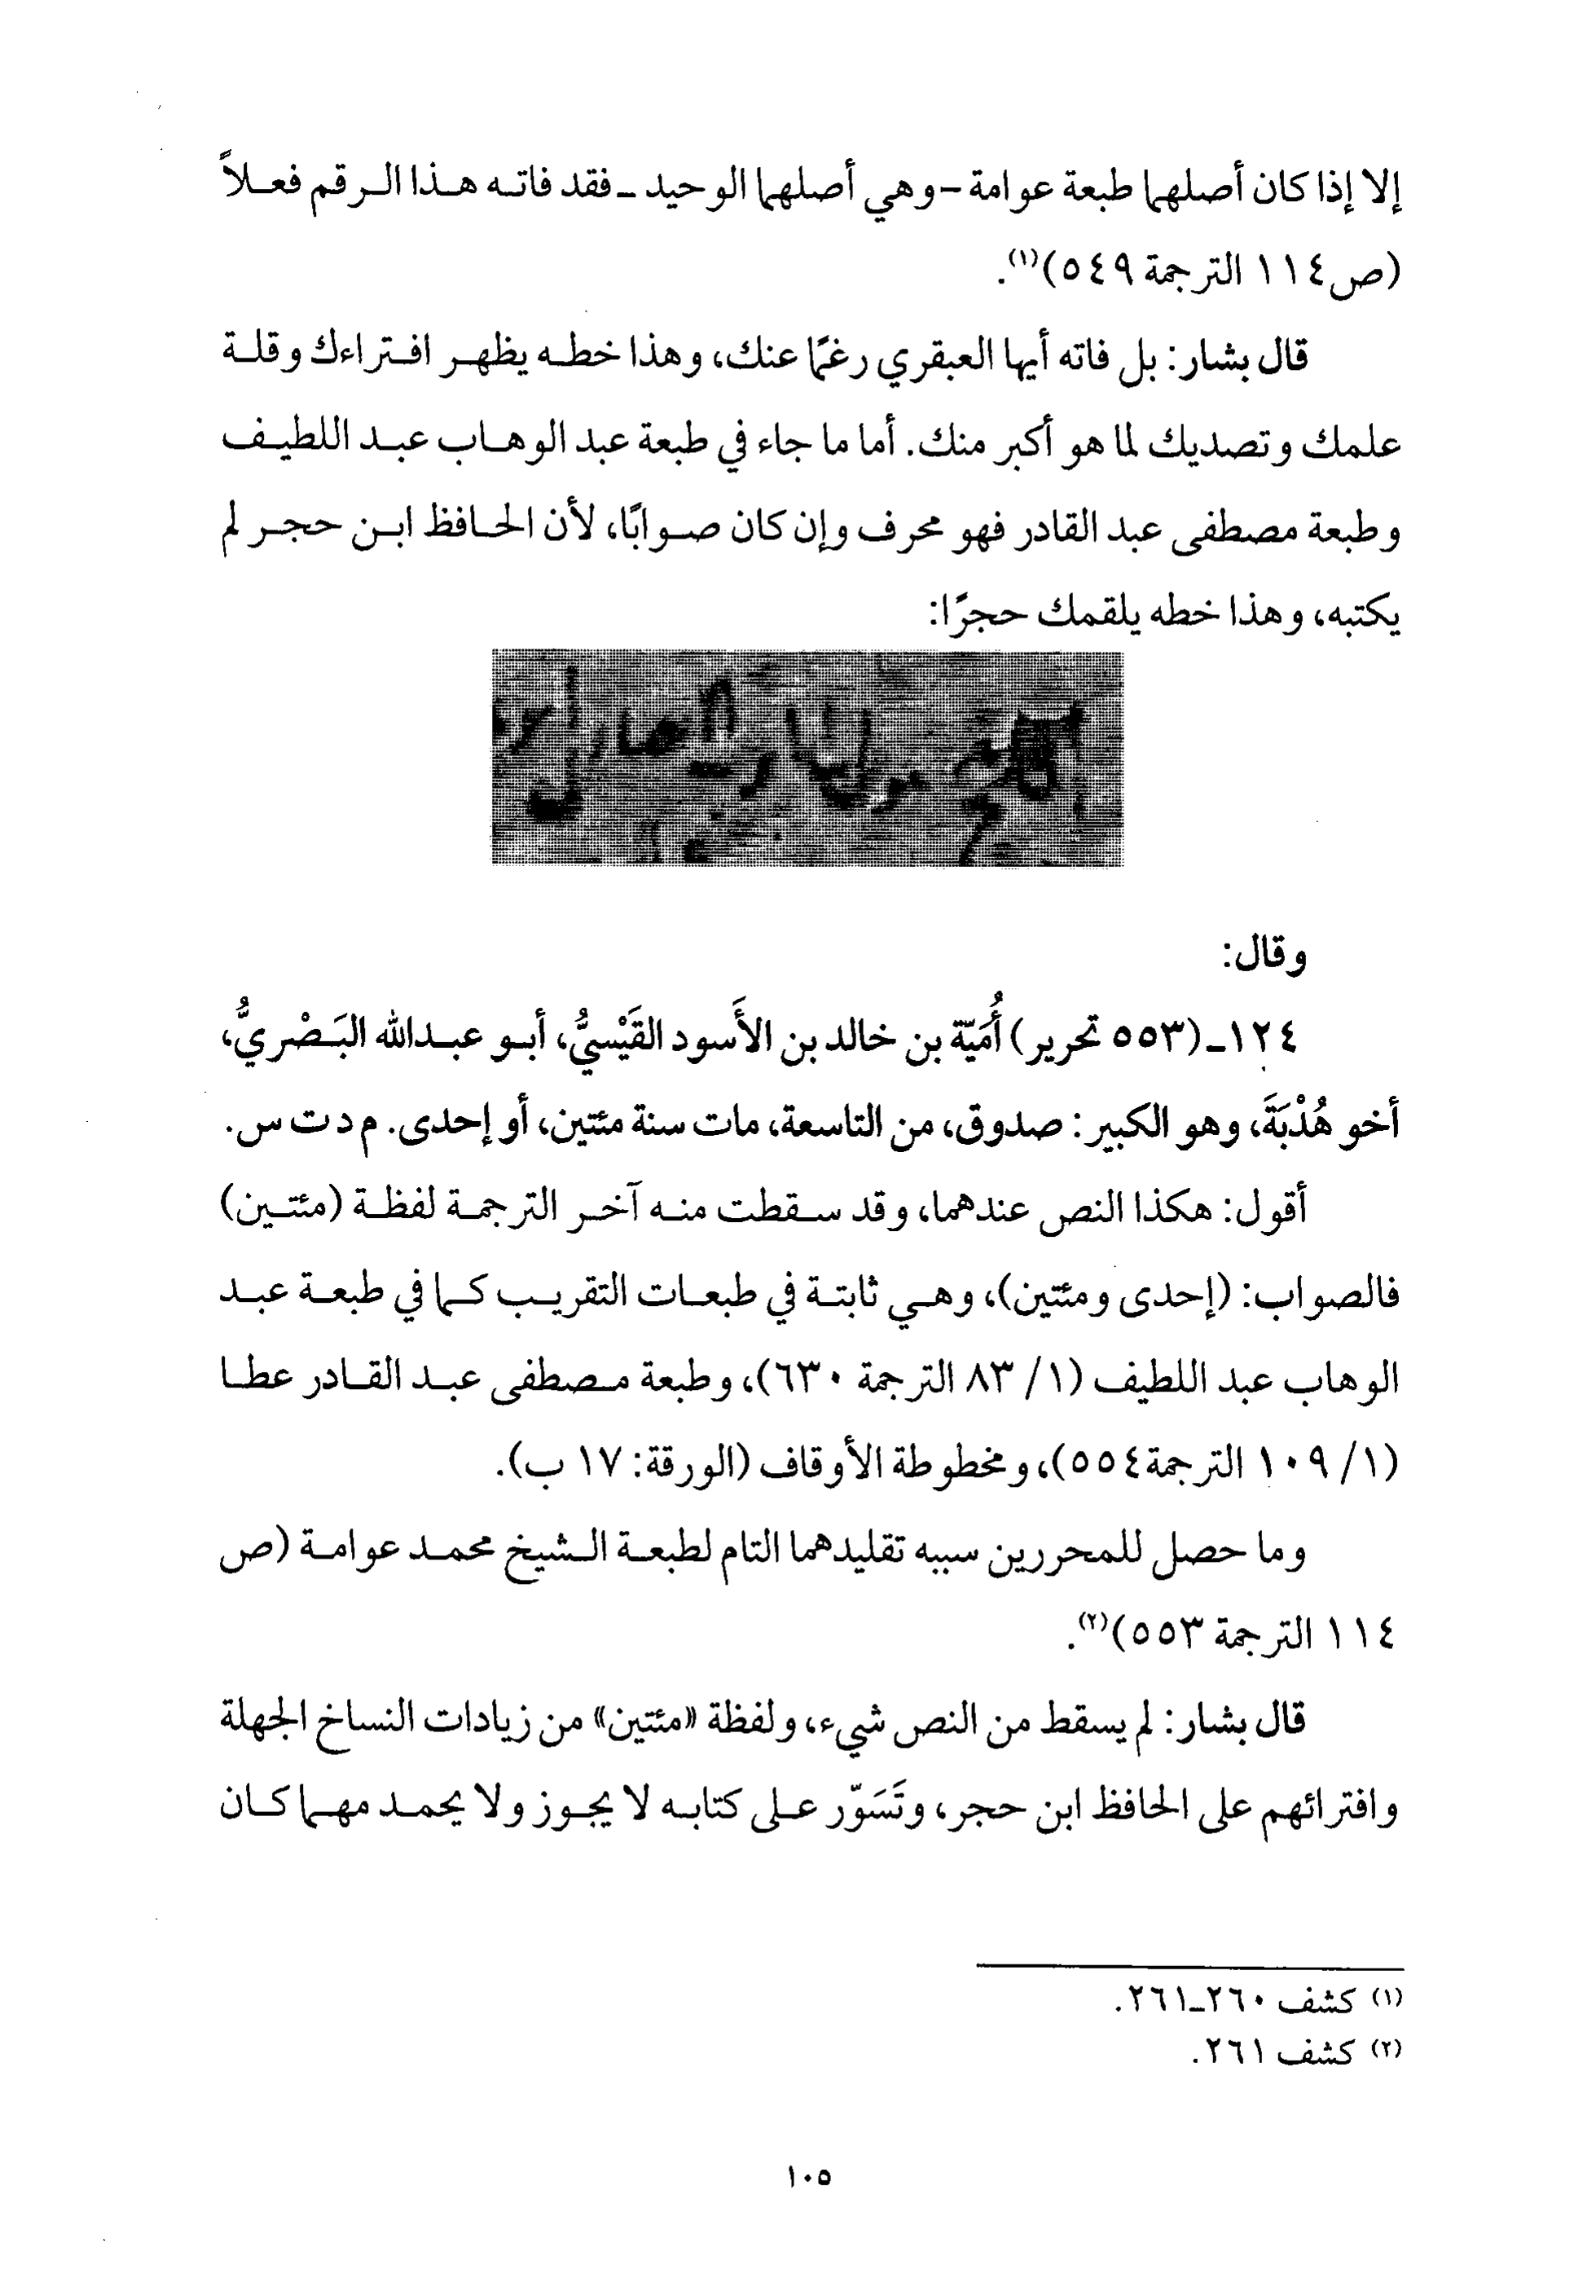 إلا إذا كان أصلهما طبعة عوامة -وهي أصلهما الوحيد- فقد فاته هذا الرقم فعلاً
(ص١١٤ الترجمة ٥٤٩)(١).
قال بشار: بل فاته أيها العبقري رغمًا عنك، وهذا خطه يظهر افتراءك وقلة
علمك وتصديك لما هو أكبر منك. أما ما جاء في طبعة عبد الوهاب عبد اللطيف
وطبعة مصطفى عبد القادر فهو محرف وإن كان صوابًا، لأن الحافظ ابن حجر لم
يكتبه، وهذا خطه يلقمك حجرًا:
وقال:
١٢٤ـ (٥٥٣ تحرير) أُمَيّة بن خالد بن الأَسود القَيْسيُّ، أبو عبدالله البَصْريُّ،
أخو هُدْبَةَ، وهو الكبير: صدوق، من التاسعة، مات سنة مئتين، أو إحدى. م د ت س.
أقول: هكذا النص عندهما، وقد سقطت منه آخر الترجمة لفظة (مئتين)
فالصواب: (إحدى ومئتين)، وهي ثابتة في طبعات التقريب كما في طبعة عبد
الوهاب عبد اللطيف (١/ ٨٣ الترجمة ٦٣٠)، وطبعة مصطفى عبد القادر عطا
(١/ ١٠٩ الترجمة٥٥٤)، ومخطوطة الأوقاف (الورقة: ١٧ ب).
وما حصل للمحررين سببه تقليدهما التام لطبعة الشيخ محمد عوامة (ص
١١٤ الترجمة ٥٥٣)(٢).
قال بشار: لم يسقط من النص شيء، ولفظة «مئتين» من زيادات النساخ الجهلة
وافترائهم على الحافظ ابن حجر، وتَسَوّر على كتابه لا يجوز ولا يحمد مهما كان
(١) كشف ٢٦٠ـ٢٦١.
(٢) كشف ٢٦١.
١٠٥